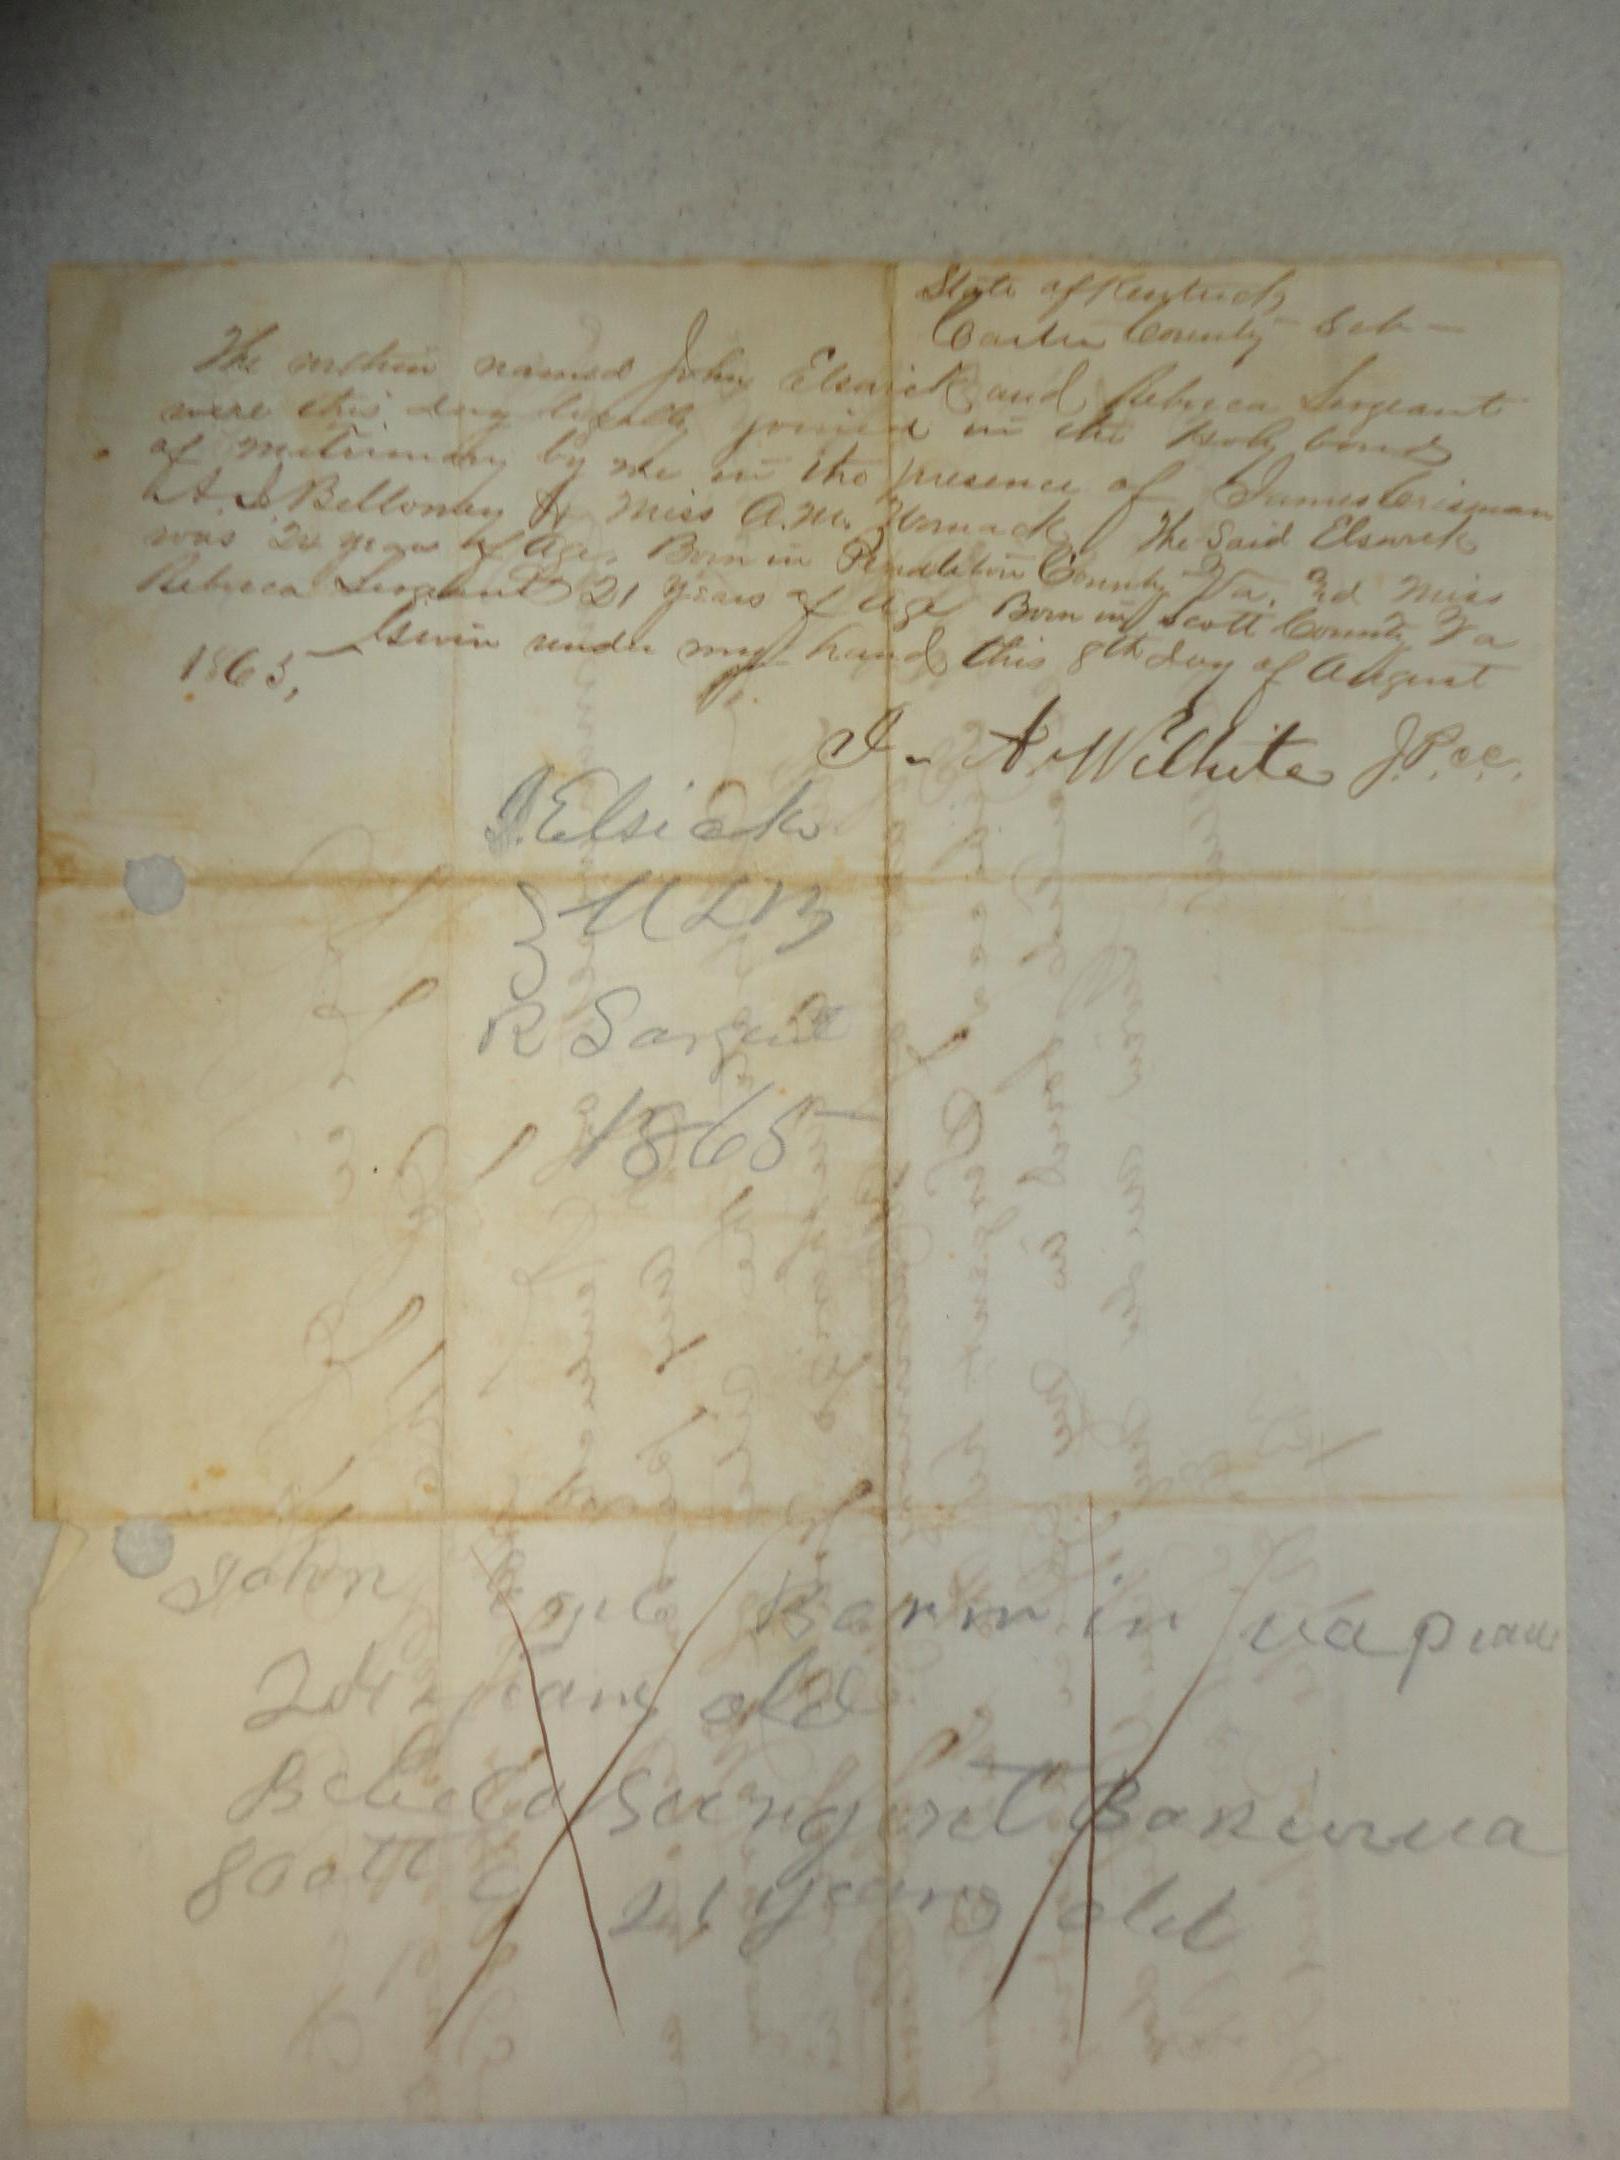 State of Kentucky
Carter County Sct -
The within named John Elswick and Rebeca Sergeant
were this day legally joined in the Holy bonds
of Matrimony by me in the presence of James Crisman
A. J. Bellomy & Miss A. M. Womack The Said Elswick
was 24 years of Age. Born in Pendleton County Va. 3rd Miss
Rebeca Sergeant 21 years of Age Born in Scott County Va
Given under my hand this 8th day of August
1865,
J. A. Wilhite J.P.C.C.
J. Elsick
M L B
R Sargent
1865
John Born in va
24 years old
Sergent Born in va
Scott C 21 years old